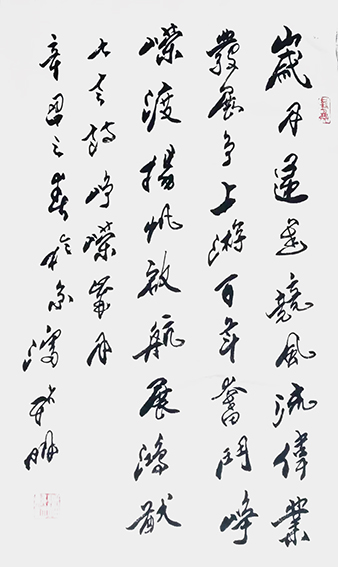 歲月競風流偉業
發展爭上游百年奮鬥崢
嶸渡揚帆啟航展鴻猷
七言詩崢嶸歲月
辛丑之春於京